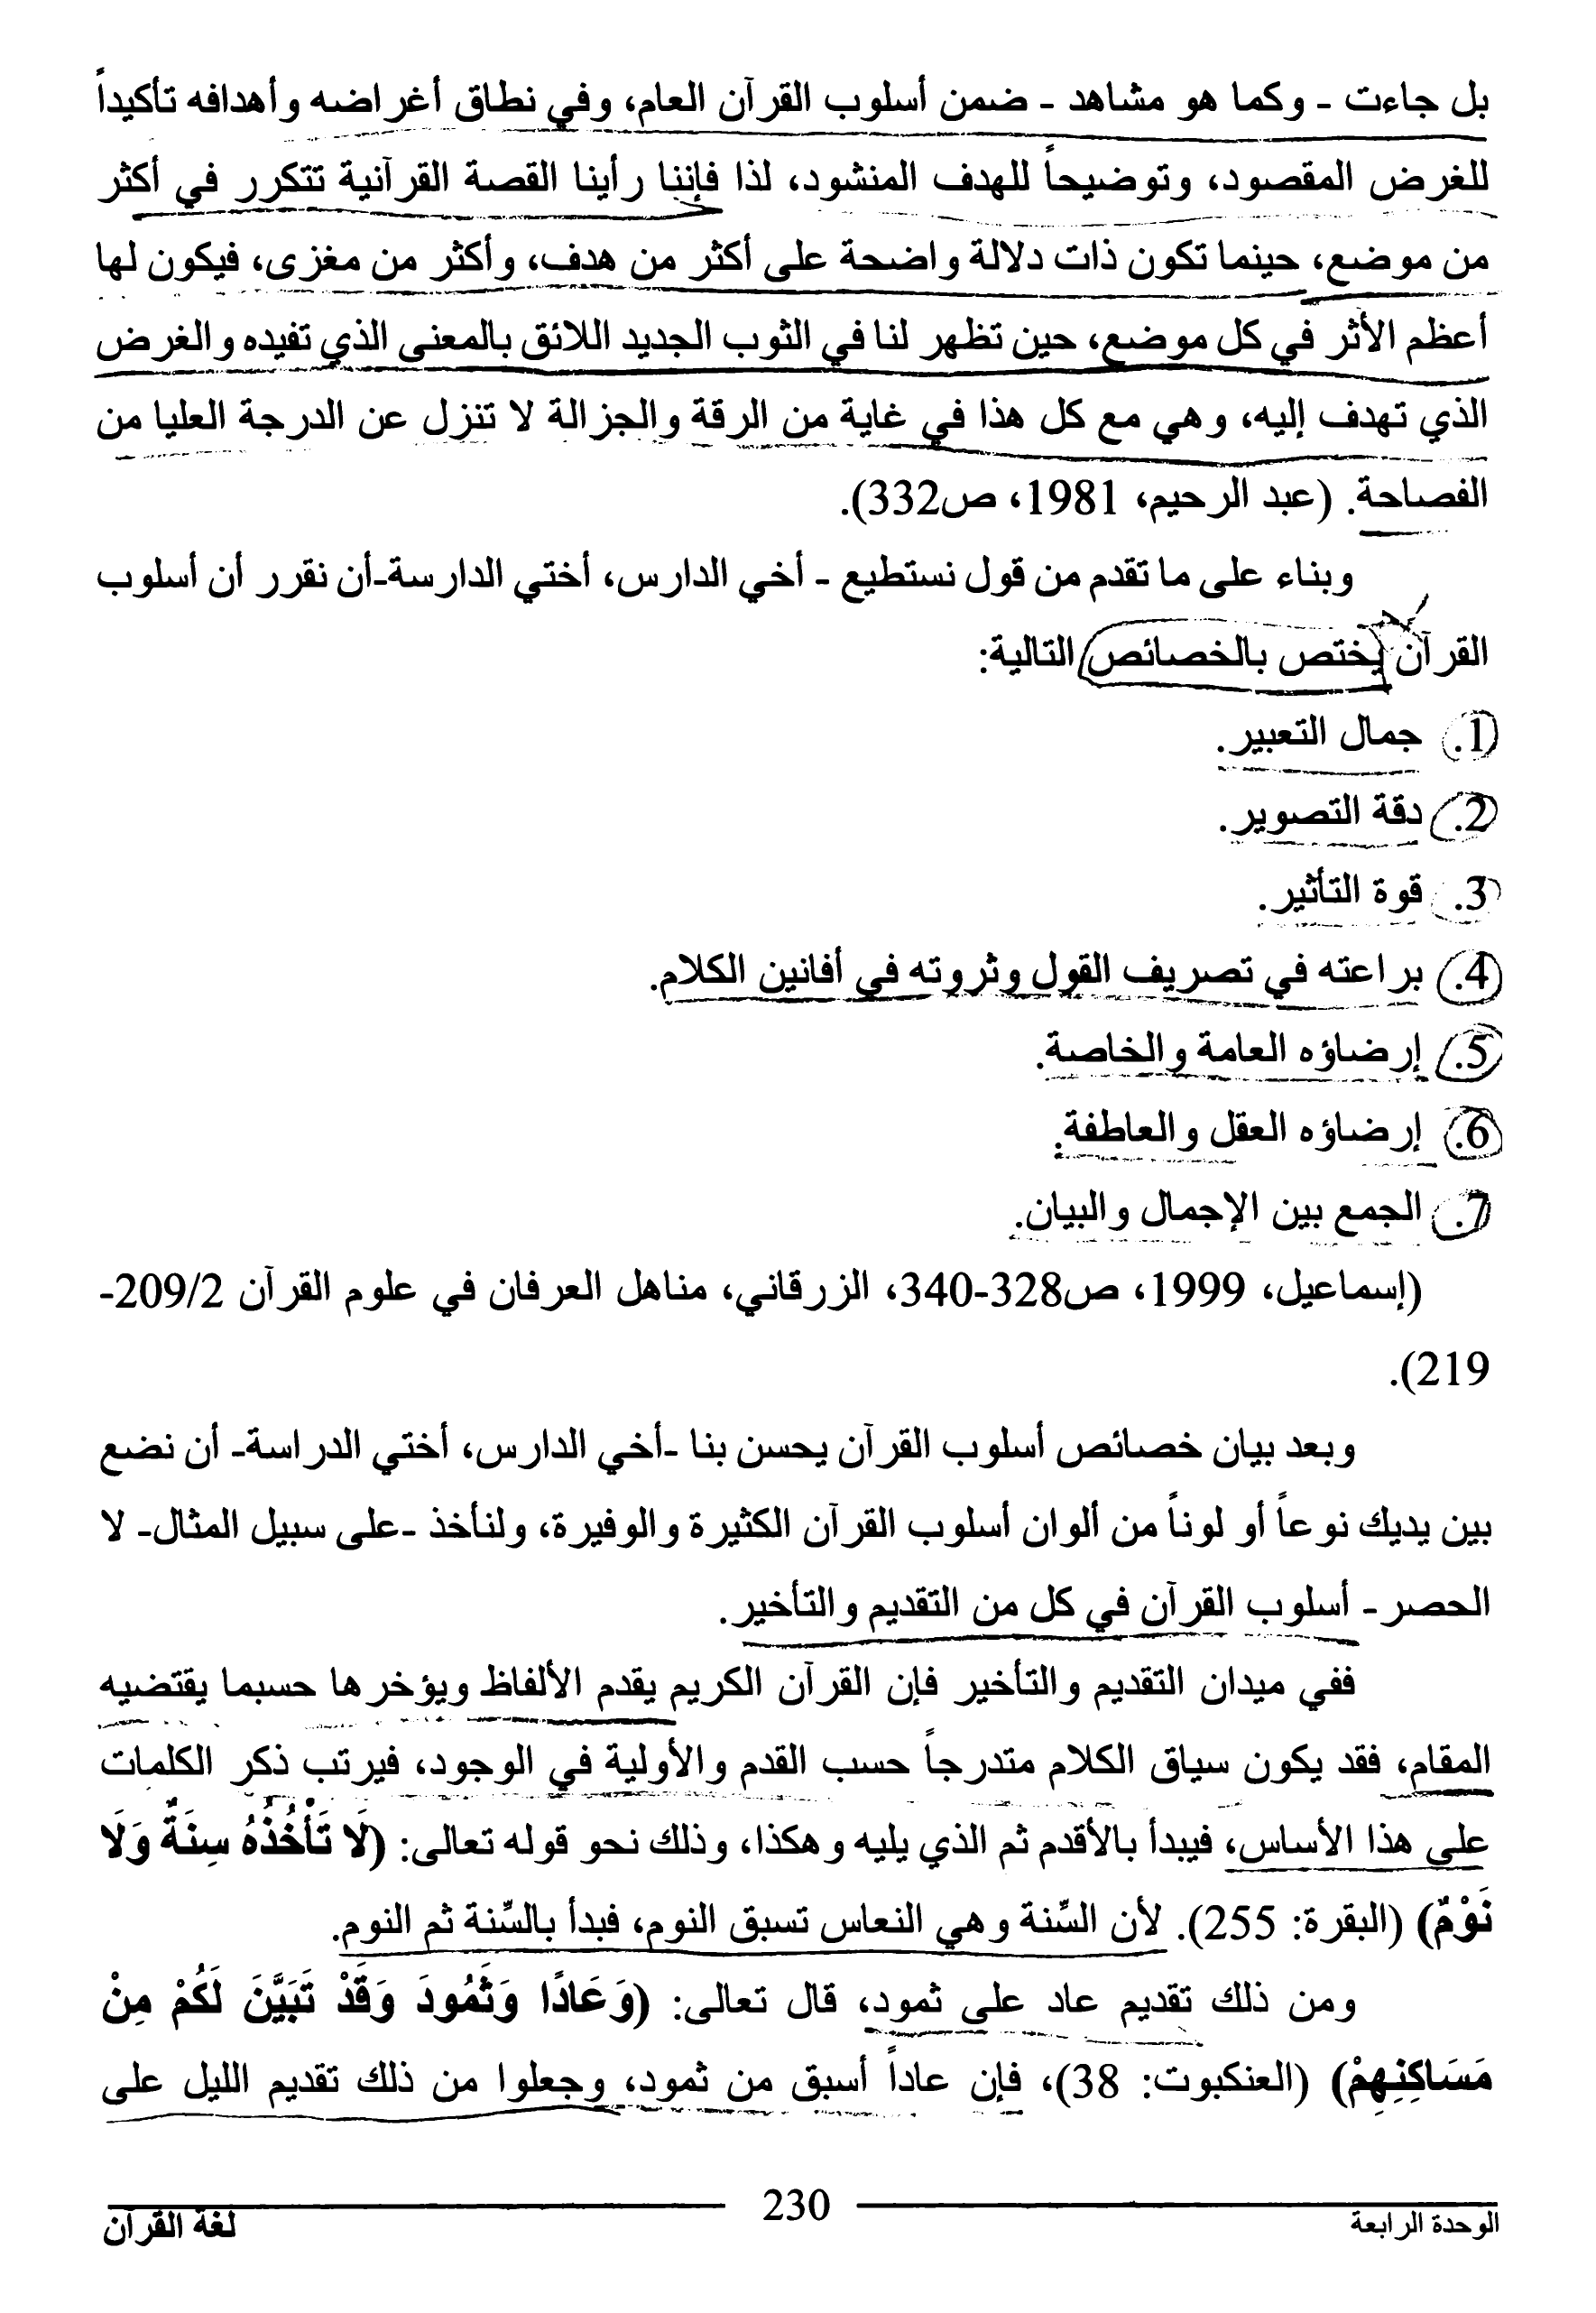 بل جاءت - وكما هو مشاهد - ضمن أسلوب القرآن العام، وفي نطاق أغراضه وأهدافه تأكيداً
للغرض المقصود، وتوضيحاً للهدف المنشود، لذا فإننا رأينا القصة القرآنية تتكرر في أكثر
من موضع، حينما تكون ذات دلالة واضحة على أكثر من هدف، وأكثر من مغزى، فيكون لها
أعظم الأثر في كل موضع، حين تظهر لنا في الثوب الجديد اللائق بالمعنى الذي تفيده والغرض
الذي تهدف إليه، وهي مع كل هذا في غاية من الرقة والجزالة لا تنزل عن الدرجة العليا من
الفصاحة. (عبد الرحيم، 1981، ص332).
وبناء على ما تقدم من قول نستطيع - أخي الدارس، أختي الدارسة-أن نقرر أن أسلوب
القرآن يختص بالخصائص التالية:
1. جمال التعبير.
2. دقة التصوير.
3. قوة التأثير.
4. براعته في تصريف القول وثروته في أفانين الكلام.
5. إرضاؤه العامة والخاصة.
6. إرضاؤه العقل والعاطفة.
7. الجمع بين الإجمال والبيان.
(إسماعيل، 1999، ص328-340، الزرقاني، مناهل العرفان في علوم القرآن 209/2-
219).
وبعد بيان خصائص أسلوب القرآن يحسن بنا -أخي الدارس، أختي الدراسة- أن نضع
بين يديك نوعاً أو لوناً من ألوان أسلوب القرآن الكثيرة والوفيرة، ولنأخذ -على سبيل المثال- لا
الحصر- أسلوب القرآن في كل من التقديم والتأخير.
ففي ميدان التقديم والتأخير فإن القرآن الكريم يقدم الألفاظ ويؤخرها حسبما يقتضيه
المقام، فقد يكون سياق الكلام متدرجاً حسب القدم والأولية في الوجود، فيرتب ذكر الكلمات
على هذا الأساس، فيبدأ بالأقدم ثم الذي يليه وهكذا، وذلك نحو قوله تعالى: (لَا تَأْخُذُهُ سِنَةٌ وَلَا
نَوْمٌ) (البقرة: 255). لأن السِّنة وهي النعاس تسبق النوم، فبدأ بالسِّنة ثم النوم.
ومن ذلك تقديم عاد على ثمود، قال تعالى: (وَعَادًا وَثَمُودَ وَقَدْ تَبَيَّنَ لَكُمْ مِنْ
مَسَاكِنِهِمْ) (العنكبوت: 38)، فإن عاداً أسبق من ثمود، وجعلوا من ذلك تقديم الليل على
الوحدة الرابعة 230 لغة القرآن